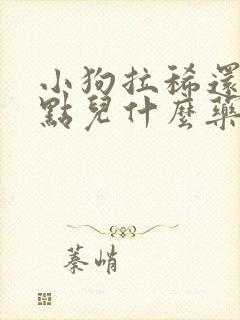 小狗拉稀還
點兒什麼藥
蓁峭